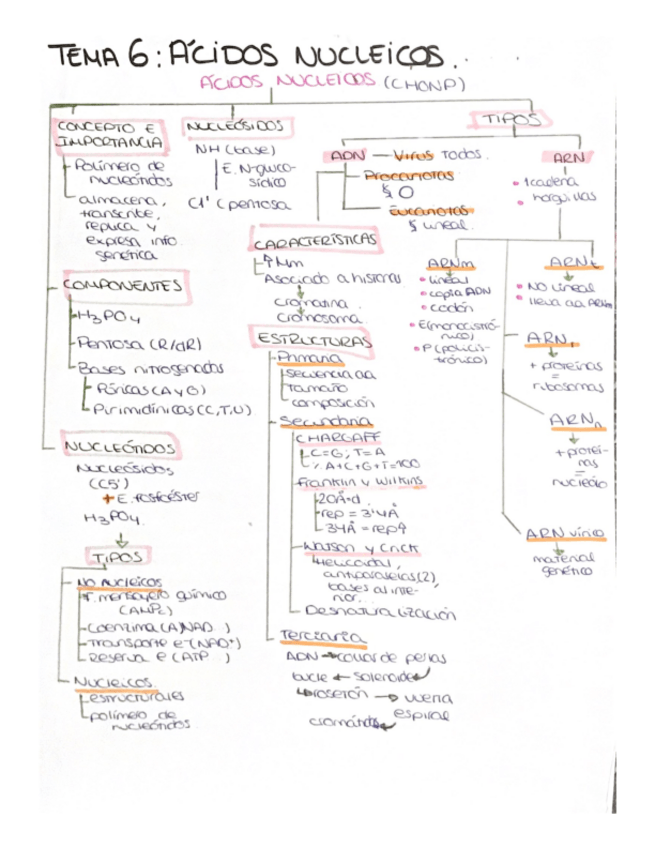 TEMA 6: ÁCIDOS NUCLEICOS
ÁCIDOS NUCLEICOS (CHONP)
CONCEPTO E IMPORTANCIA
Polímero de
nucleótidos
almacena,
transcribe,
replica y
expresa info.
genética
COMPONENTES
H3PO4
Pentosa (R/dR)
Bases nitrogenadas
Púricas (A y G)
Pirimidínicas (C,T,U)
NUCLEÓTIDOS
Nucleósidos
(C5')
+ E. fosfoéster
H3PO4
TIPOS
No nucleicos
mensajero químico
(AMPc)
Coenzima (A) NAD )
Transporte e- (NAD+)
Reserva E (ATP )
Nucleicos
estructurales
polímero de
nucleótidos
NUCLEÓSIDOS
NH (base)
E. N-gluco-
sídico
C1' (pentosa
TIPOS
ADN — Virus Todos.
Procariotas
O
Eucariotas
lineal
CARACTERÍSTICAS
↑Mm
Asociado a histonas
cromatina
cromosoma
ESTRUCTURAS
Primaria
secuencia
tamaño
composición
Secundaria
CHARGAFF
C=G; T=A
% A+C+G+T=100
Franklin y Wilkins
20Å=d
rep = 3'4Å
34Å = rep
Watson y Crick
Helicoidal,
antiparalelas(2),
bases al inte-
rior...
Desnaturalización
Terciaria
ADN → collar de perlas
bucle ← solenoide
rosetón → u
espiral
cromátida
ARN
1 cadena
horquillas
ARNm
lineal
copia ADN
codón
E(monocistró-
nico)
P (policis-
trónico)
ARNt
NO lineal
lleva aa ARNm
ARNr
+ proteínas
=
ribosomas
ARNn
+ protei-
nas
=
nucleolo
ARN vírico
material
genético